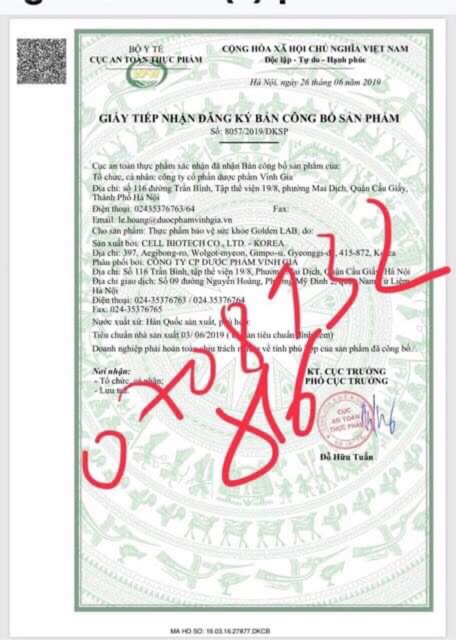 BỘ Y TẾ
CỤC AN TOÀN THỰC PHẨM
CỘNG HÒA XÃ HỘI CHỦ NGHĨA VIỆT NAM
Độc lập - Tự do - Hạnh phúc
Hà Nội, ngày 26 tháng 06 năm 2019
GIẤY TIẾP NHẬN ĐĂNG KÝ BẢN CÔNG BỐ SẢN PHẨM
Số: 8057/2019/ĐKSP
Cục an toàn thực phẩm xác nhận đã nhận Bản công bố sản phẩm của:
Tổ chức, cá nhân: công ty cổ phần dược phẩm Vinh Gia
Địa chỉ: số 116 đường Trần Bình, Tập thể viện 19/8, phường Mai Dịch, Quận Cầu Giấy,
Thành Phố Hà Nội
Điện thoại: 02435376763/64 Fax:
Email: le.hoang@duocphamvinhgia.vn
Cho sản phẩm: Thực phẩm bảo vệ sức khỏe Golden LAB; do:
Sản xuất bởi: CELL BIOTECH CO., LTD. - KOREA
Địa chỉ: 397, Aegibong-ro, Wolgot-myeon, Gimpo-si, Gyeonggi-do, 415-872, Korea
Phân phối bởi: CÔNG TY CP DƯỢC PHẨM VINH GIA
Địa chỉ: Số 116 Trần Bình, tập thể viện 19/8, Phường Mai Dịch, Quận Cầu Giấy, Hà Nội
Địa chỉ giao dịch: Số 09 đường Nguyễn Hoàng, Phường Mỹ Đình 2, quận Nam Từ Liêm,
Hà Nội
Điện thoại: 024-35376763 / 024.35376764
Fax: 024-35376765
Nước xuất xứ: Hàn Quốc sản xuất, phù hợp
Tiêu chuẩn nhà sản xuất 03/ 06/2019 (bản tiêu chuẩn đính kèm)
Doanh nghiệp phải hoàn toàn chịu trách nhiệm về tính phù hợp của sản phẩm đã công bố./.
Nơi nhận:
- Tổ chức, cá nhân;
- Lưu trữ.
KT. CỤC TRƯỞNG
PHÓ CỤC TRƯỞNG
CỤC
AN TOÀN
THỰC PHẨM
Đỗ Hữu Tuấn
0708732
816
MA HO SO: 19.03.16.27877.DKCB